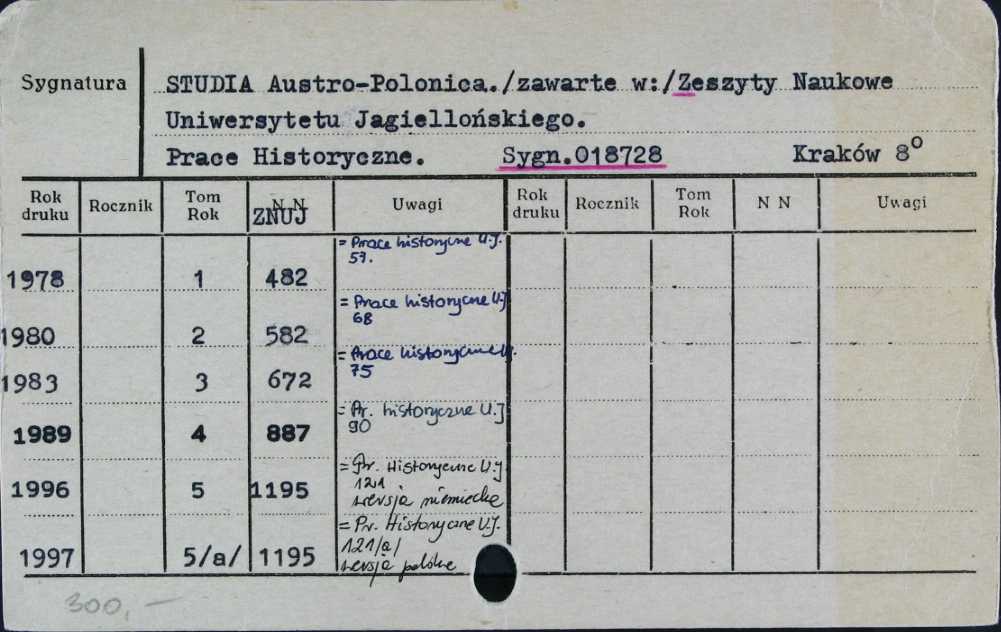 Sygnatura
STUDIA Austro-Polonica./zawarte w:/Zeszyty Naukowe
Uniwersytetu Jagiellońskiego.
Prace Historyczne. Sygn.018728 Kraków 8°
Rok druku Rocznik Tom Rok N N ZNUJ Uwagi Rok druku Rocznik Tom Rok N N Uwagi
= Prace historyczne U.J.
1978 1 482 57.
= Prace historyczne U.J
1980 2 582 68
= Prace historyczne U.J.
1983 3 672 75
= Pr. historyczne U.J
1989 4 887 90
= Pr. Historyczne U.J
1996 5 1195 121
wersja niemiecka
= Pr. Historyczne U.J.
1997 5/a/ 1195 121/a/
wersja polska
300,—